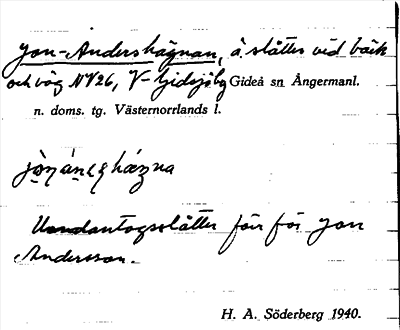 Jon-Andershägnan, å. slåtter vid bäck
och väg NV26, V- Gideåsjöbg Gideå sn Ångermanl.
n. doms. tg. Västernorrlands l.
Undantagsslåtter förr för Jon
Andersson.
H. A. Söderberg 1940.